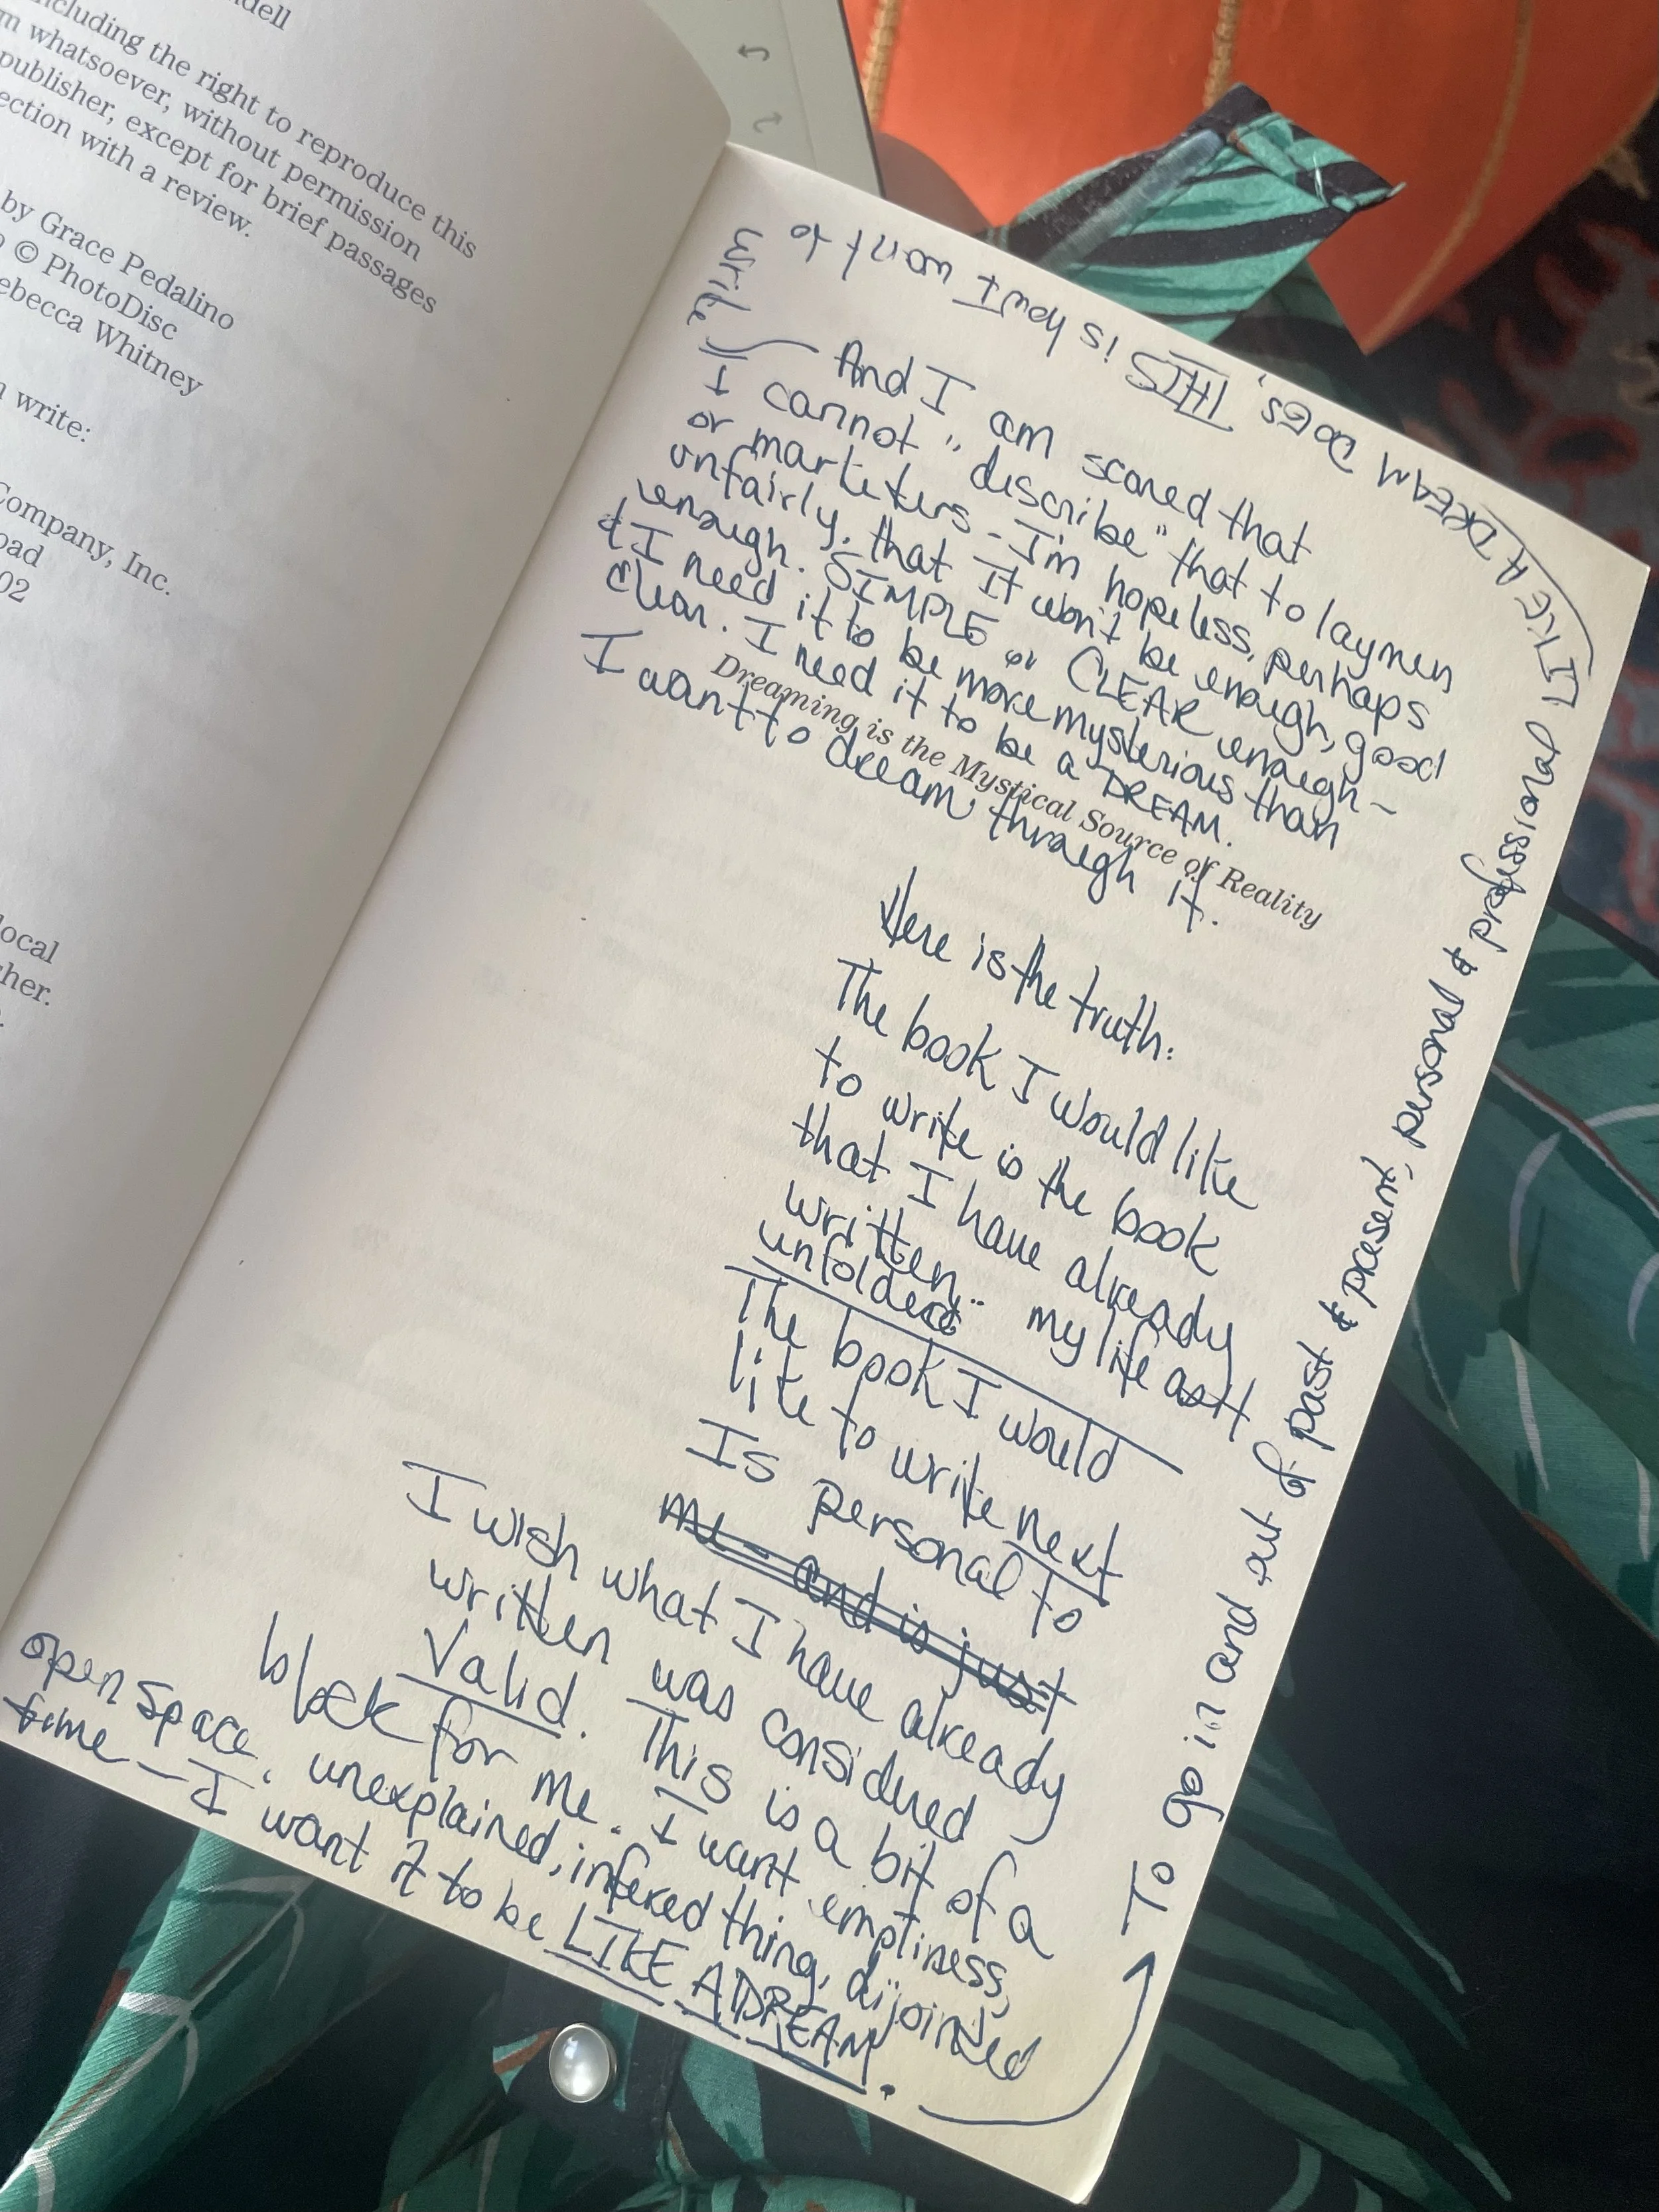 dell
including the right to reproduce this
m whatsoever, without permission
publisher, except for brief passages
ection with a review.
by Grace Pedalino
© PhotoDisc
ebecca Whitney
write:
Company, Inc.
oad
02
local
her.
Dreaming is the Mystical Source of Reality
Here is the truth:
The book I would like
to write is the book
that I have already
written.. my life as it
unfolded
The book I would
like to write next
Is personal to
me - and is just
I wish what I have already
written was considered
Valid. This is a bit of a
block for me. I want emptiness,
open space, unexplained, infered thing, disjointed
time - I want it to be LIKE A DREAM.
To go in and out of past & present, personal & professional
LIKE A DREAM DOES. THIS is how I want to
write
And I am scared that
I cannot "describe" that to laymen
or marketers - I'm hopeless, perhaps
unfairly, that it won't be enough, good
enough. SIMPLE or CLEAR enough -
& I need it to be more mysterious than
clear. I need it to be a DREAM.
I want to dream through it.